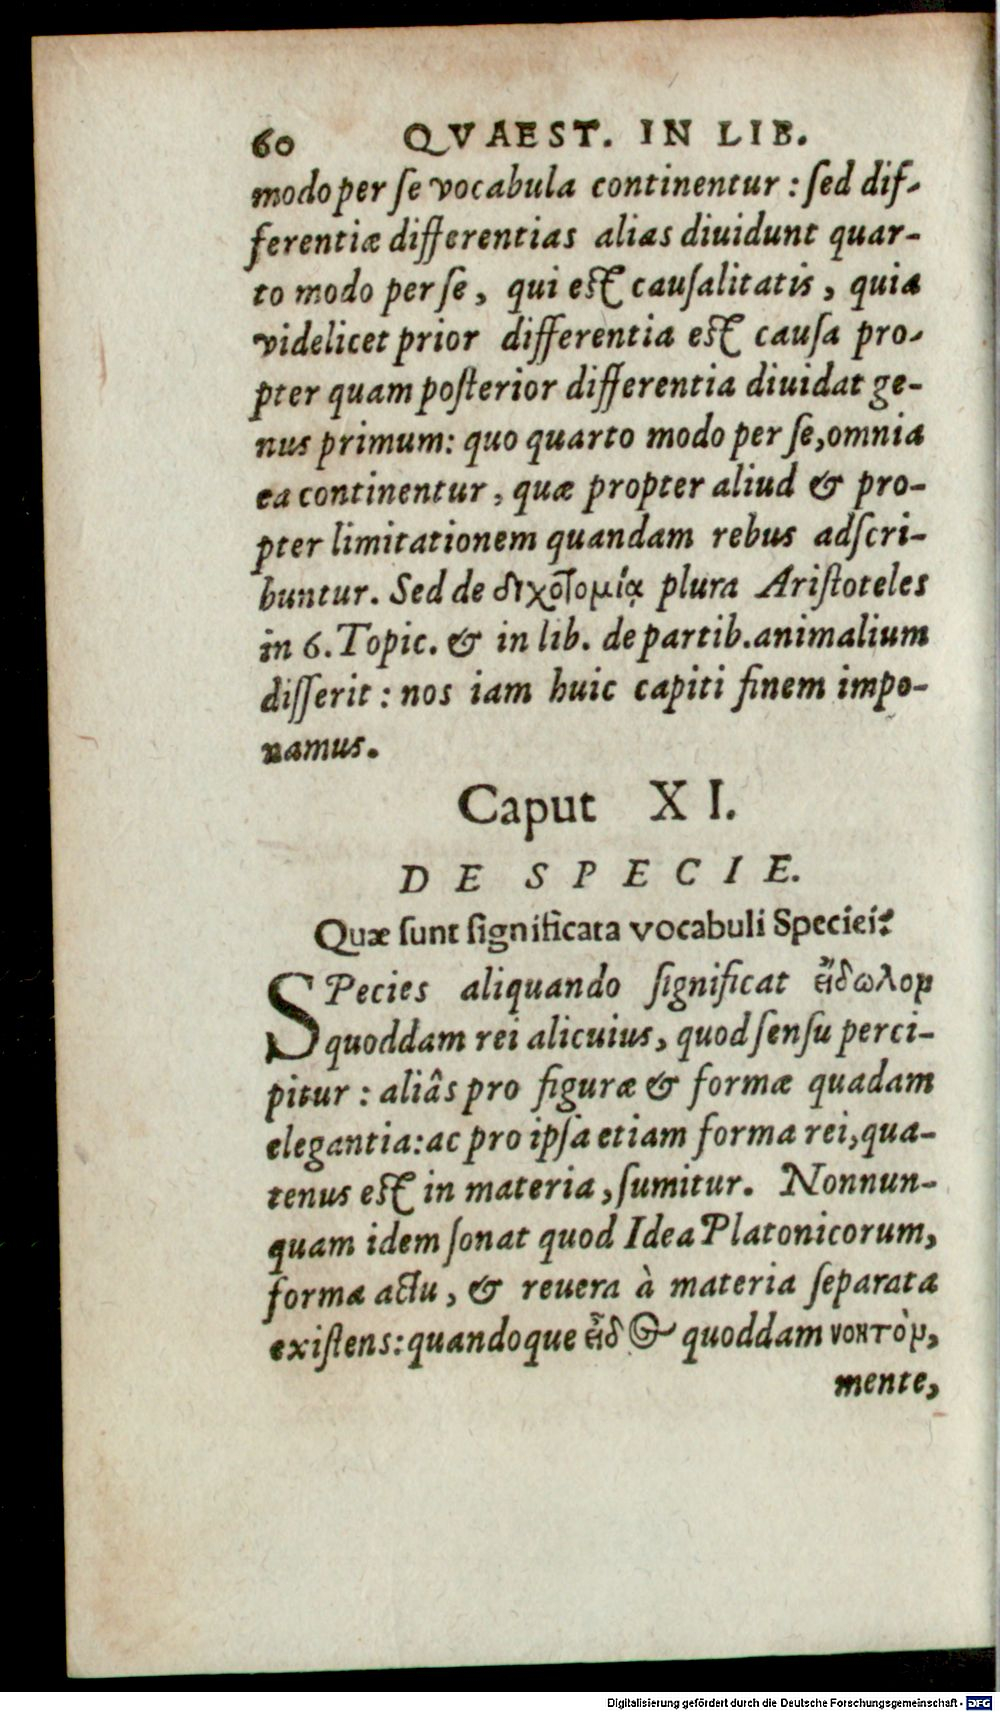 60 QVAEST. IN LIB.
modo per ſe vocabula continentur : ſed dif-
ferentiæ differentias alias diuidunt quar-
to modo per ſe, qui eſt cauſalitatis, quia
videlicet prior differentia eſt cauſa pro-
pter quam poſterior differentia diuidat ge-
nus primum: quo quarto modo per ſe, omnia
ea continentur, quæ propter aliud & pro-
pter limitationem quandam rebus adſcri-
buntur. Sed de διχοτομίᾳ plura Ariſtoteles
in 6. Topic. & in lib. de partib. animalium
diſſerit : nos iam huic capiti finem impo-
namus.
Caput XI.
DE SPECIE.
Quæ ſunt ſignificata vocabuli Speciei?
SPecies aliquando ſignificat εἴδωλον
quoddam rei alicuius, quod ſenſu perci-
pitur : aliâs pro figuræ & formæ quadam
elegantia: ac pro ipſa etiam forma rei, qua-
tenus eſt in materia, ſumitur. Nonnun-
quam idem ſonat quod Idea Platonicorum,
forma actu, & reuera à materia ſeparata
exiſtens: quandoque εἶδος quoddam νοητὸν,
mente,
Digitalisierung gefördert durch die Deutsche Forschungsgemeinschaft - DFG